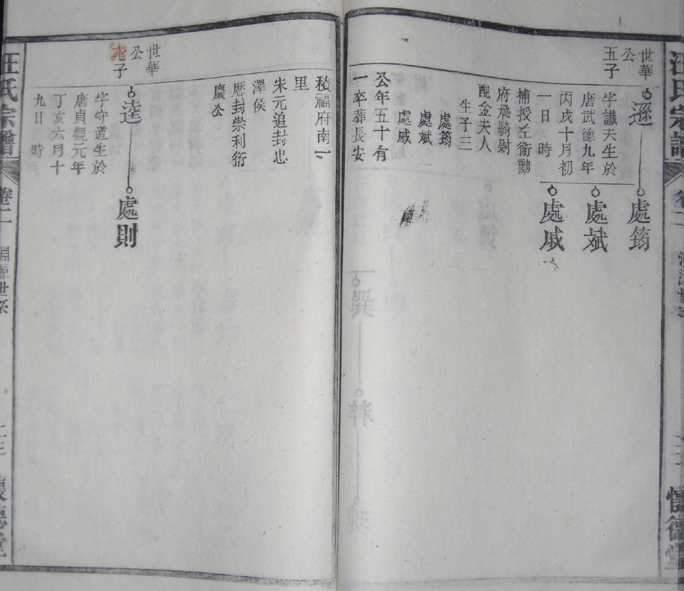 汪氏宗譜
卷二
懷德堂
世華公五子
遜 處筠
處斌
處戚
字謙夫生於
唐武德九年
丙戌十月初
一日 時
補授左衛勳
府飛騎尉
配金夫人
生子三
處筠
處斌
處戚
公年五十有
一卒葬長安
積福府南一
里
朱元追封忠
澤侯
歷封崇利衍
慶公
世華公 子
達 處則
字守道生於
唐貞觀元年
丁亥六月十
九日 時
汪氏宗譜
卷二
淵源世系
懷德堂